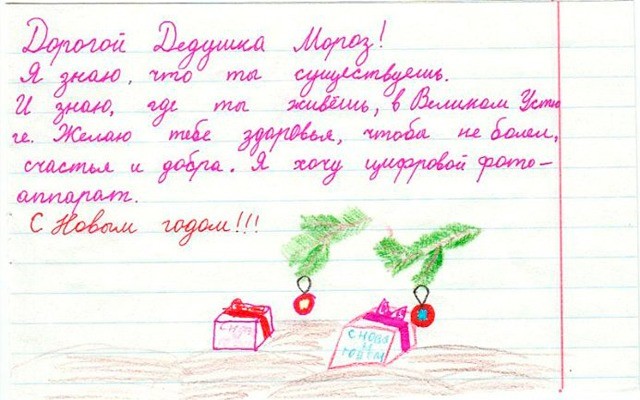 Дорогой Дедушка Мороз!
Я знаю, что ты существуешь.
И знаю, где ты живёшь, в Великом Устю
ге. Желаю тебе здоровья, чтоба не болел,
счастья и добра. Я хочу цифровой фото-
аппарат.
С Новым годом!!!
С НОВЫ
М
ГОДОМ